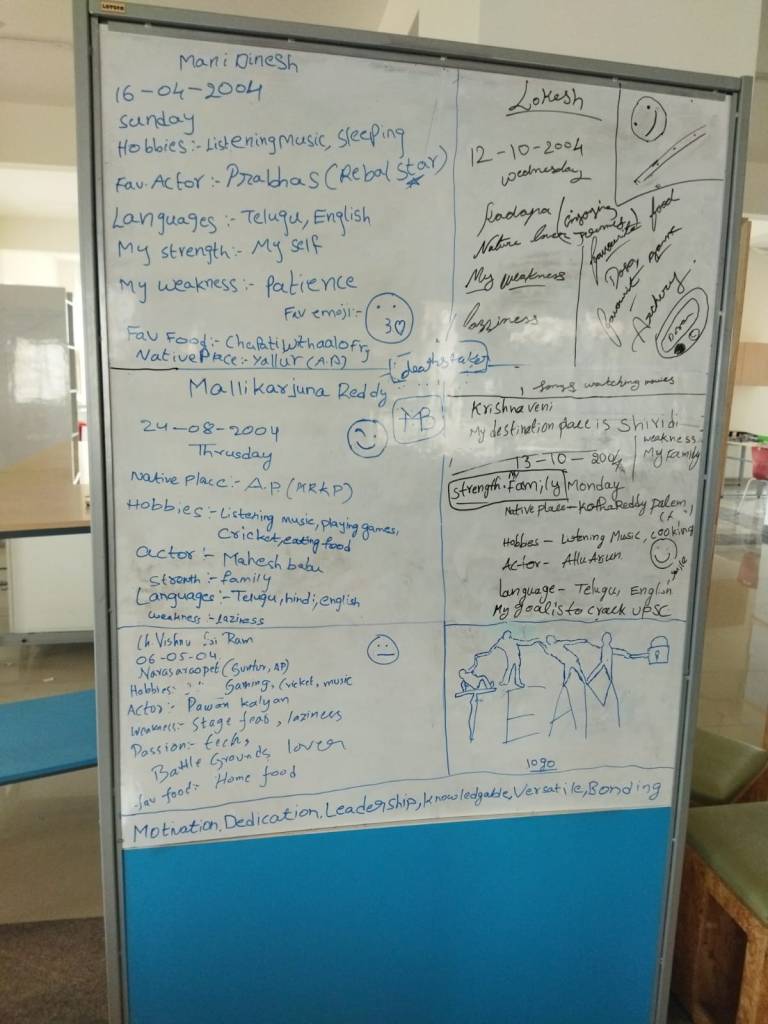 Mani Dinesh
16-04-2004
Sunday
Hobbies:- Listening Music, Sleeping
Fav. Actor:- Prabhas (Rebal Star)
Languages:- Telugu, English
My strength:- My self
My weakness:- Patience
Fav emoji:-
Fav Food:- Chapati
Native Place:- Yallur (A.P)
Lokesh
12-10-2004
Wednesday
Kadapa
Nature lover
My weakness
Lazziness
favourite food
Dosa
favourit game
Archery.
Mallikarjuna Reddy
24-08-2004
Thrusday
Native Place:- A.P. (MRKP)
Hobbies:- Listening music, playing games,
Cricket, eating food
actor:- Mahesh babu
Stronth:- family
Languages:- Telugu, hindi, english
weakness:- laziness
MB
, songs watching movies
Krishna veni
My destination place is Shiridi
weakness
My family
13-10-2004
Strength. My Family Monday
Native place - Kotha Reddy Palem
Hobbies - Listening Music, cooking
Actor- Allu Arjun
smile
language- Telugu, English
My goal is to crack UPSC
Ch. Vishnu Sri Ram
06-05-04
Narasaraopet (Guntur, AP)
Hobbies: Gaming, Cricket, music
Actor:- Pawan Kalyan
Weakness:- Stage fear, laziness
Passion:- tech,
Battle Grounds lover
fav food:- Home food
TEAM
logo
Motivation, Dedication, Leadership, Knowledgable, Versatile, Bonding